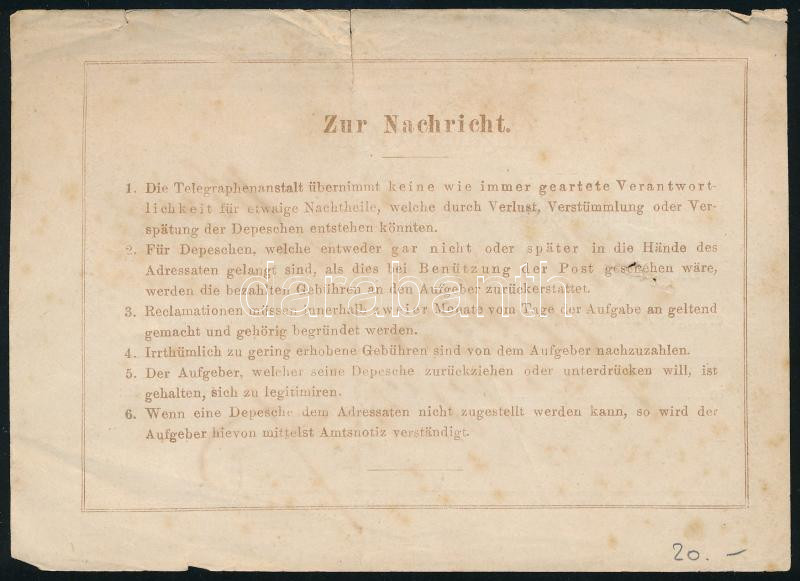 Zur Nachricht.
1. Die Telegraphenanstalt übernimmt keine wie immer geartete Verantwort-
lichkeit für etwaige Nachtheile, welche durch Verlust, Verstümmlung oder Ver-
spätung der Depeschen entstehen könnten.
2. Für Depeschen, welche entweder gar nicht oder später in die Hände des
Adressaten gelangt sind, als dies bei Benützung der Post geschehen wäre,
werden die bezahlten Gebühren an den Aufgeber zurückerstattet.
darabanth
3. Reclamationen müssen innerhalb zweier Monate vom Tage der Aufgabe an geltend
gemacht und gehörig begründet werden.
4. Irrthümlich zu gering erhobene Gebühren sind von dem Aufgeber nachzuzahlen.
5. Der Aufgeber, welcher seine Depesche zurückziehen oder unterdrücken will, ist
gehalten, sich zu legitimiren.
6. Wenn eine Depesche dem Adressaten nicht zugestellt werden kann, so wird der
Aufgeber hievon mittelst Amtsnotiz verständigt.
20.–